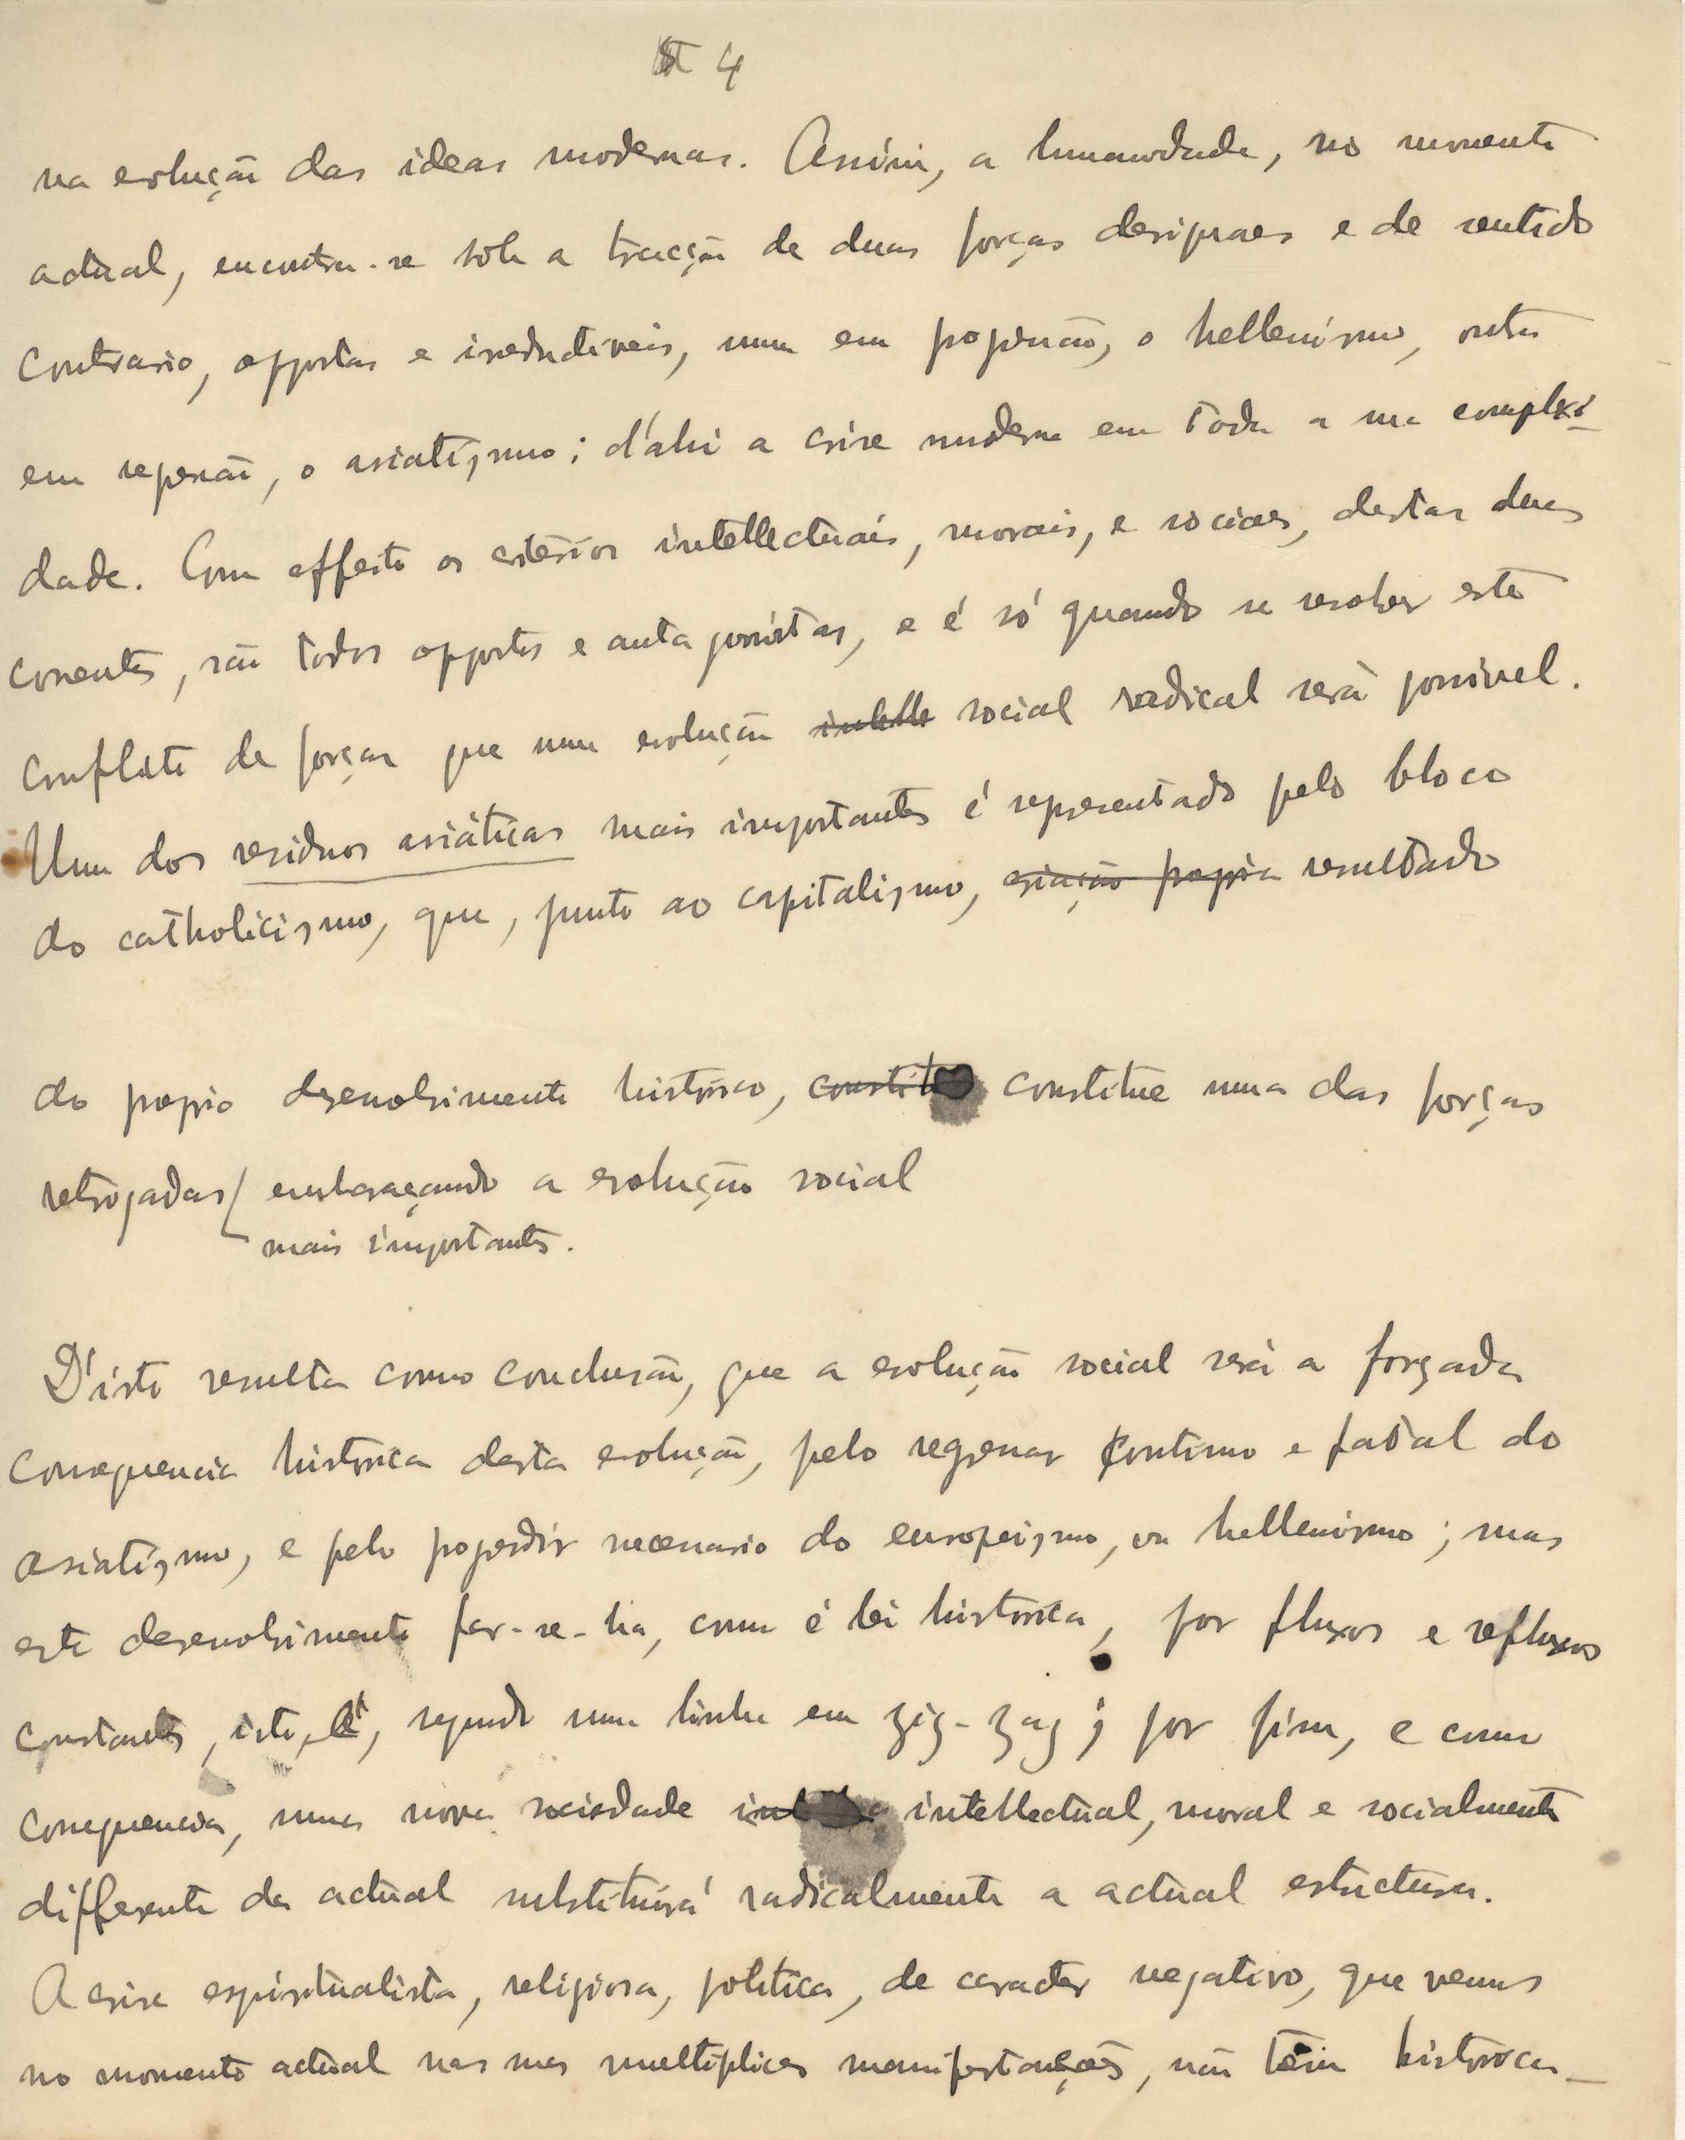 4
na evolução das ideas modernas. Assim, a humanidade, no momento
actual, encontra-se sob a tracção de duas forças desiguaes e de sentido
contrario, oppostas e irreductiveis, uma em progressão, o hellenismo, outra
em regressão, o asiatismo; d'ahi a crise moderna em toda a sua complexi-
dade. Com effeito os critérios intellectuais, morais, e sociaes, destas duas
correntes, são todos oppostos e antagonistas, e é só quando se resolver este
conflicto de forças que uma evolução intelle social radical será possivel.
Um dos residuos asiáticos mais importantes é representado pelo bloco
do catholicismo, que, junto ao capitalismo, criação propria resultado
do proprio desenvolvimento histórico, constitue constitue uma das forças
retrogadas embaraçando a evolução social
mais importantes.
D'isto resulta como conclusão, que a evolução social será a forçada
consequencia histórica desta evolução, pelo regressar continuo e fatal do
asiatismo, e pelo progredir necessario do europeismo, ou hellenismo; mas
este desenvolvimento far-se-ha, como é lei histórica, por fluxos e refluxos
constantes, isto é, segundo uma linha em zig-zag; por fim, e como
consequencia, uma nova sociedade intellectual, moral e socialmente
differente da actual substituirá radicalmente a actual estructura.
A crise espiritualista, religiosa, politica, de caracter negativo, que vemos
no momento actual nas suas multiplices manifestações, não tem historica-